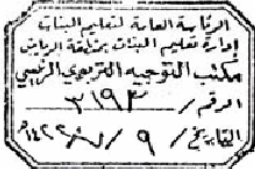 الرئاسة العامة لتعليم البنات
إدارة تعليم البنات بمنطقة الرياض
مكتب التوجيه التربوي الرئيسي
الرقم / ٣١٩٣
التاريخ / ٩ / / ١٤٢٢هـ